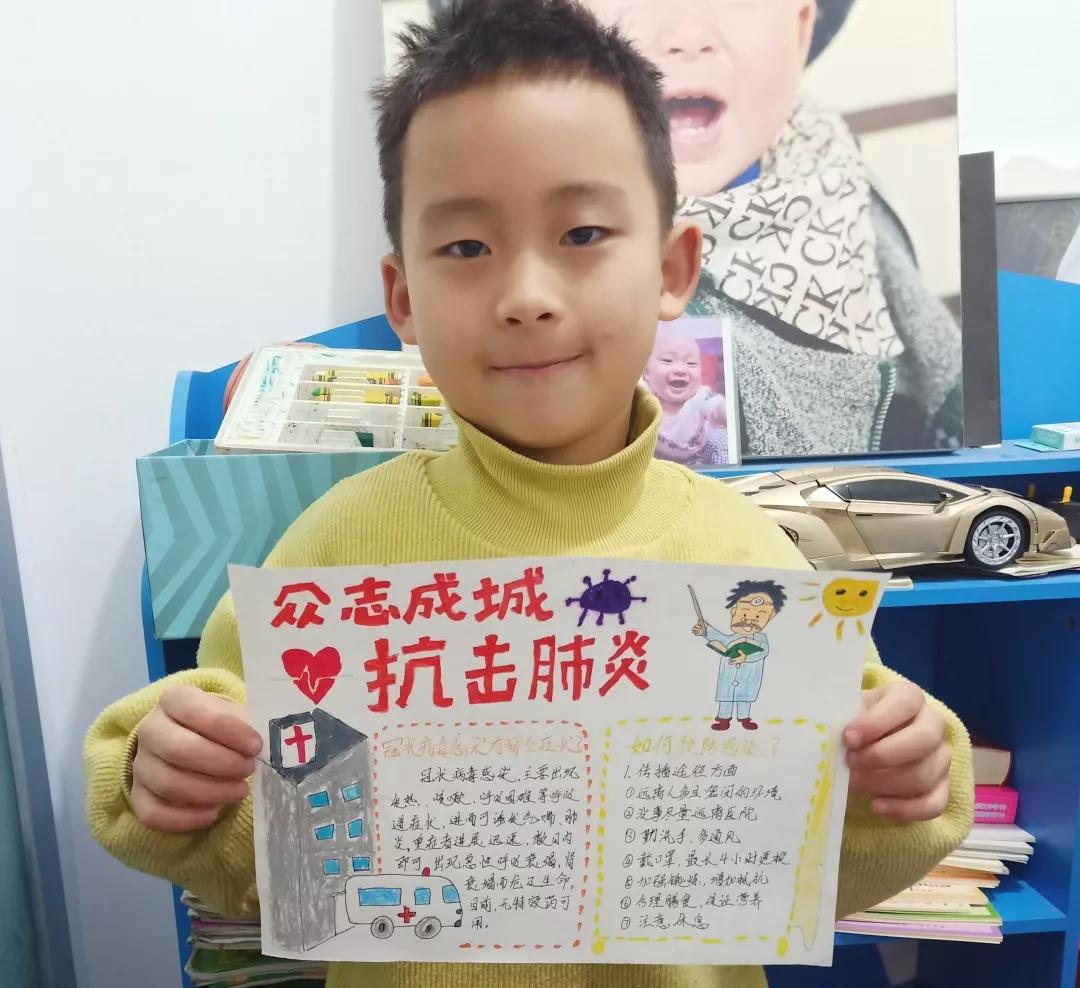 众志成城
抗击肺炎
冠状病毒感染有哪些症状？
冠状病毒感染，主要出现
发热、咳嗽、呼吸困难等呼吸
道症状，进而可诱发气喘、肺
炎，重症者进展迅速，数日内
即可出现急性呼吸衰竭，肾
衰竭而危及生命。
目前，无特效药可
用。
如何预防感染？
1.传播途径方面
①远离人多且空间的环境
②没事尽量远离医院
③勤洗手、多通风
④戴口罩，最长4小时更换
⑤加强锻炼，增加抵抗
⑥合理膳食，保证营养
⑦注意休息
CK CK CK